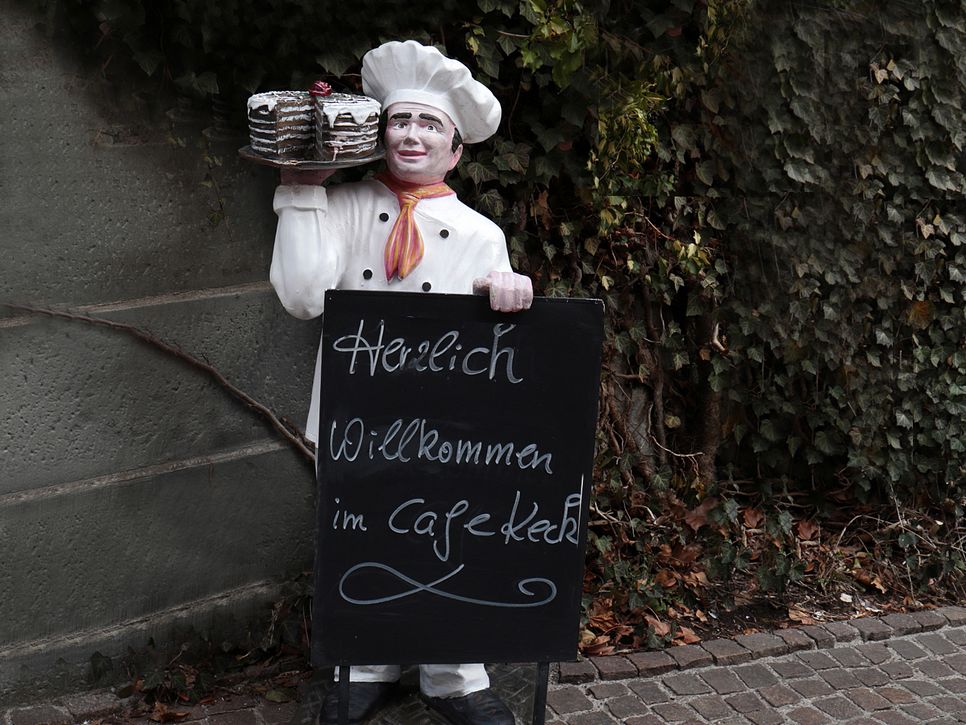 Herzlich
Willkommen
im Cafe Keck